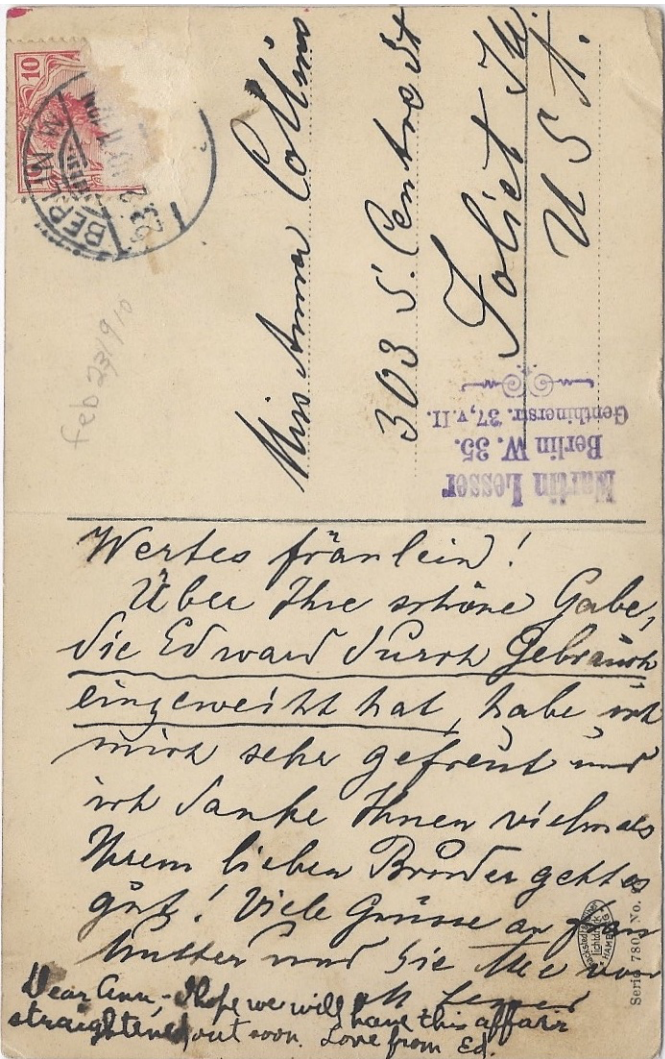 10
BERLIN W
23.2.10
feb 23 1910
Miss Anna Collins
303 S. Centre St
Joliet Ill.
U S A.
Martin Lesser
Berlin W. 35.
Genthinerstr. 37, v. II.
Wertes fräulein!
Über Ihre schöne Gabe,
die Edward durch Gebrauch
eingeweiht hat, habe ich
mich sehr gefreut und
ich danke Ihnen vielmals
Ihrem lieben Bruder geht es
gut! Viele Grüsse an
Mutter und Sie Alle von
M Lesser
Dear Ann,- I hope we will have this affair
straightened out soon. Love from Ed.
lichtdruck
HAMBURG
Serie 780 No.